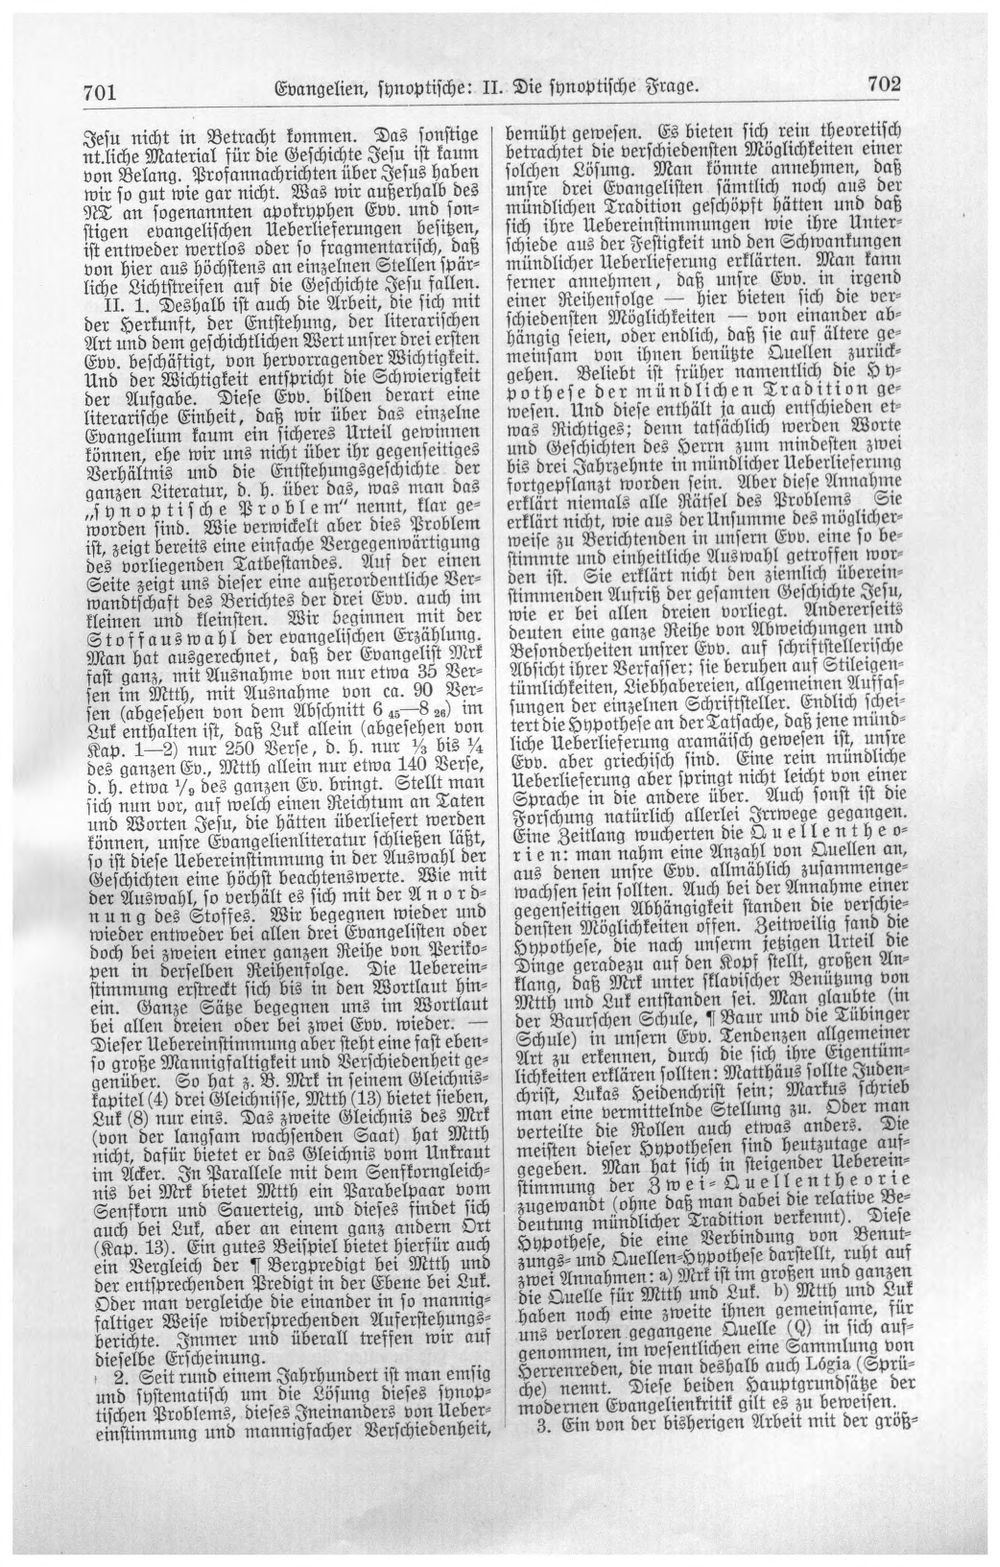 701
Evangelien, synoptische: II. Die synoptische Frage.
702
Jesu nicht in Betracht kommen. Das sonstige
nt.liche Material für die Geschichte Jesu ist kaum
von Belang. Profannachrichten über Jesus haben
wir so gut wie gar nicht. Was wir außerhalb des
NT an sogenannten apokryphen Evv. und son⸗
stigen evangelischen Ueberlieferungen besitzen,
ist entweder wertlos oder so fragmentarisch, daß
von hier aus höchstens an einzelnen Stellen spär⸗
liche Lichtstreifen auf die Geschichte Jesu fallen.
II. 1. Deshalb ist auch die Arbeit, die sich mit
der Herkunft, der Entstehung, der literarischen
Art und dem geschichtlichen Wert unsrer drei ersten
Evv. beschäftigt, von hervorragender Wichtigkeit.
Und der Wichtigkeit entspricht die Schwierigkeit
der Aufgabe. Diese Evv. bilden derart eine
literarische Einheit, daß wir über das einzelne
Evangelium kaum ein sicheres Urteil gewinnen
können, ehe wir uns nicht über ihr gegenseitiges
Verhältnis und die Entstehungsgeschichte der
ganzen Literatur, d. h. über das, was man das
„synoptische Problem" nennt, klar ge⸗
worden sind. Wie verwickelt aber dies Problem
ist, zeigt bereits eine einfache Vergegenwärtigung
des vorliegenden Tatbestandes. Auf der einen
Seite zeigt uns dieser eine außerordentliche Ver⸗
wandtschaft des Berichtes der drei Evv. auch im
kleinen und kleinsten. Wir beginnen mit der
Stoffauswahl der evangelischen Erzählung.
Man hat ausgerechnet, daß der Evangelist Mrk
fast ganz, mit Ausnahme von nur etwa 35 Ver⸗
sen im Mtth, mit Ausnahme von ca. 90 Ver⸗
sen (abgesehen von dem Abschnitt 6 45—8 26) im
Luk enthalten ist, daß Luk allein (abgesehen von
Kap. 1—2) nur 250 Verse, d. h. nur ⅓ bis ¼
des ganzen Ev., Mtth allein nur etwa 140 Verse,
d. h. etwa 1/9 des ganzen Ev. bringt. Stellt man
sich nun vor, auf welch einen Reichtum an Taten
und Worten Jesu, die hätten überliefert werden
können, unsre Evangelienliteratur schließen läßt,
so ist diese Uebereinstimmung in der Auswahl der
Geschichten eine höchst beachtenswerte. Wie mit
der Auswahl, so verhält es sich mit der Anord⸗
nung des Stoffes. Wir begegnen wieder und
wieder entweder bei allen drei Evangelisten oder
doch bei zweien einer ganzen Reihe von Periko⸗
pen in derselben Reihenfolge. Die Ueberein⸗
stimmung erstreckt sich bis in den Wortlaut hin⸗
ein. Ganze Sätze begegnen uns im Wortlaut
bei allen dreien oder bei zwei Evv. wieder. —
Dieser Uebereinstimmung aber steht eine fast eben⸗
so große Mannigfaltigkeit und Verschiedenheit ge⸗
genüber. So hat z. B. Mrk in seinem Gleichnis⸗
kapitel (4) drei Gleichnisse, Mtth (13) bietet sieben,
Luk (8) nur eins. Das zweite Gleichnis des Mrk
(von der langsam wachsenden Saat) hat Mtth
nicht, dafür bietet er das Gleichnis vom Unkraut
im Acker. In Parallele mit dem Senfkorngleich⸗
nis bei Mrk bietet Mtth ein Parabelpaar vom
Senfkorn und Sauerteig, und dieses findet sich
auch bei Luk, aber an einem ganz andern Ort
(Kap. 13). Ein gutes Beispiel bietet hierfür auch
ein Vergleich der ¶ Bergpredigt bei Mtth und
der entsprechenden Predigt in der Ebene bei Luk.
Oder man vergleiche die einander in so mannig⸗
faltiger Weise widersprechenden Auferstehungs⸗
berichte. Immer und überall treffen wir auf
dieselbe Erscheinung.
2. Seit rund einem Jahrhundert ist man emsig
und systematisch um die Lösung dieses synop⸗
tischen Problems, dieses Ineinanders von Ueber⸗
einstimmung und mannigfacher Verschiedenheit,
bemüht gewesen. Es bieten sich rein theoretisch
betrachtet die verschiedensten Möglichkeiten einer
solchen Lösung. Man könnte annehmen, daß
unsre drei Evangelisten sämtlich noch aus der
mündlichen Tradition geschöpft hätten und daß
sich ihre Uebereinstimmungen wie ihre Unter⸗
schiede aus der Festigkeit und den Schwankungen
mündlicher Ueberlieferung erklärten. Man kann
ferner annehmen, daß unsre Evv. in irgend
einer Reihenfolge — hier bieten sich die ver⸗
schiedensten Möglichkeiten — von einander ab⸗
hängig seien, oder endlich, daß sie auf ältere ge⸗
meinsam von ihnen benützte Quellen zurück⸗
gehen. Beliebt ist früher namentlich die Hy⸗
pothese der mündlichen Tradition ge⸗
wesen. Und diese enthält ja auch entschieden et⸗
was Richtiges; denn tatsächlich werden Worte
und Geschichten des Herrn zum mindesten zwei
bis drei Jahrzehnte in mündlicher Ueberlieferung
fortgepflanzt worden sein. Aber diese Annahme
erklärt niemals alle Rätsel des Problems Sie
erklärt nicht, wie aus der Unsumme des möglicher⸗
weise zu Berichtenden in unsern Evv. eine so be⸗
stimmte und einheitliche Auswahl getroffen wor⸗
den ist. Sie erklärt nicht den ziemlich überein⸗
stimmenden Aufriß der gesamten Geschichte Jesu,
wie er bei allen dreien vorliegt. Andererseits
deuten eine ganze Reihe von Abweichungen und
Besonderheiten unsrer Evv. auf schriftstellerische
Absicht ihrer Verfasser; sie beruhen auf Stileigen⸗
tümlichkeiten, Liebhabereien, allgemeinen Auffas⸗
sungen der einzelnen Schriftsteller. Endlich schei⸗
tert die Hypothese an der Tatsache, daß jene münd⸗
liche Ueberlieferung aramäisch gewesen ist, unsre
Evv. aber griechisch sind. Eine rein mündliche
Ueberlieferung aber springt nicht leicht von einer
Sprache in die andere über. Auch sonst ist die
Forschung natürlich allerlei Irrwege gegangen.
Eine Zeitlang wucherten die Quellentheo⸗
rien: man nahm eine Anzahl von Quellen an,
aus denen unsre Evv. allmählich zusammenge⸗
wachsen sein sollten. Auch bei der Annahme einer
gegenseitigen Abhängigkeit standen die verschie⸗
densten Möglichkeiten offen. Zeitweilig fand die
Hypothese, die nach unserm jetzigen Urteil die
Dinge geradezu auf den Kopf stellt, großen An⸗
klang, daß Mrk unter sklavischer Benützung von
Mtth und Luk entstanden sei. Man glaubte (in
der Baurschen Schule, ¶ Baur und die Tübinger
Schule) in unsern Evv. Tendenzen allgemeiner
Art zu erkennen, durch die sich ihre Eigentüm⸗
lichkeiten erklären sollten: Matthäus sollte Juden⸗
christ, Lukas Heidenchrist sein; Markus schrieb
man eine vermittelnde Stellung zu. Oder man
verteilte die Rollen auch etwas anders. Die
meisten dieser Hypothesen sind heutzutage auf⸗
gegeben. Man hat sich in steigender Ueberein⸗
stimmung der Zwei⸗Quellentheorie
zugewandt (ohne daß man dabei die relative Be⸗
deutung mündlicher Tradition verkennt). Diese
Hypothese, die eine Verbindung von Benut⸗
zungs⸗ und Quellen⸗Hypothese darstellt, ruht auf
zwei Annahmen: a) Mrk ist im großen und ganzen
die Quelle für Mtth und Luk. b) Mtth und Luk
haben noch eine zweite ihnen gemeinsame, für
uns verloren gegangene Quelle (Q) in sich auf⸗
genommen, im wesentlichen eine Sammlung von
Herrenreden, die man deshalb auch Lógia (Sprü⸗
che) nennt. Diese beiden Hauptgrundsätze der
modernen Evangelienkritik gilt es zu beweisen.
3. Ein von der bisherigen Arbeit mit der größ⸗